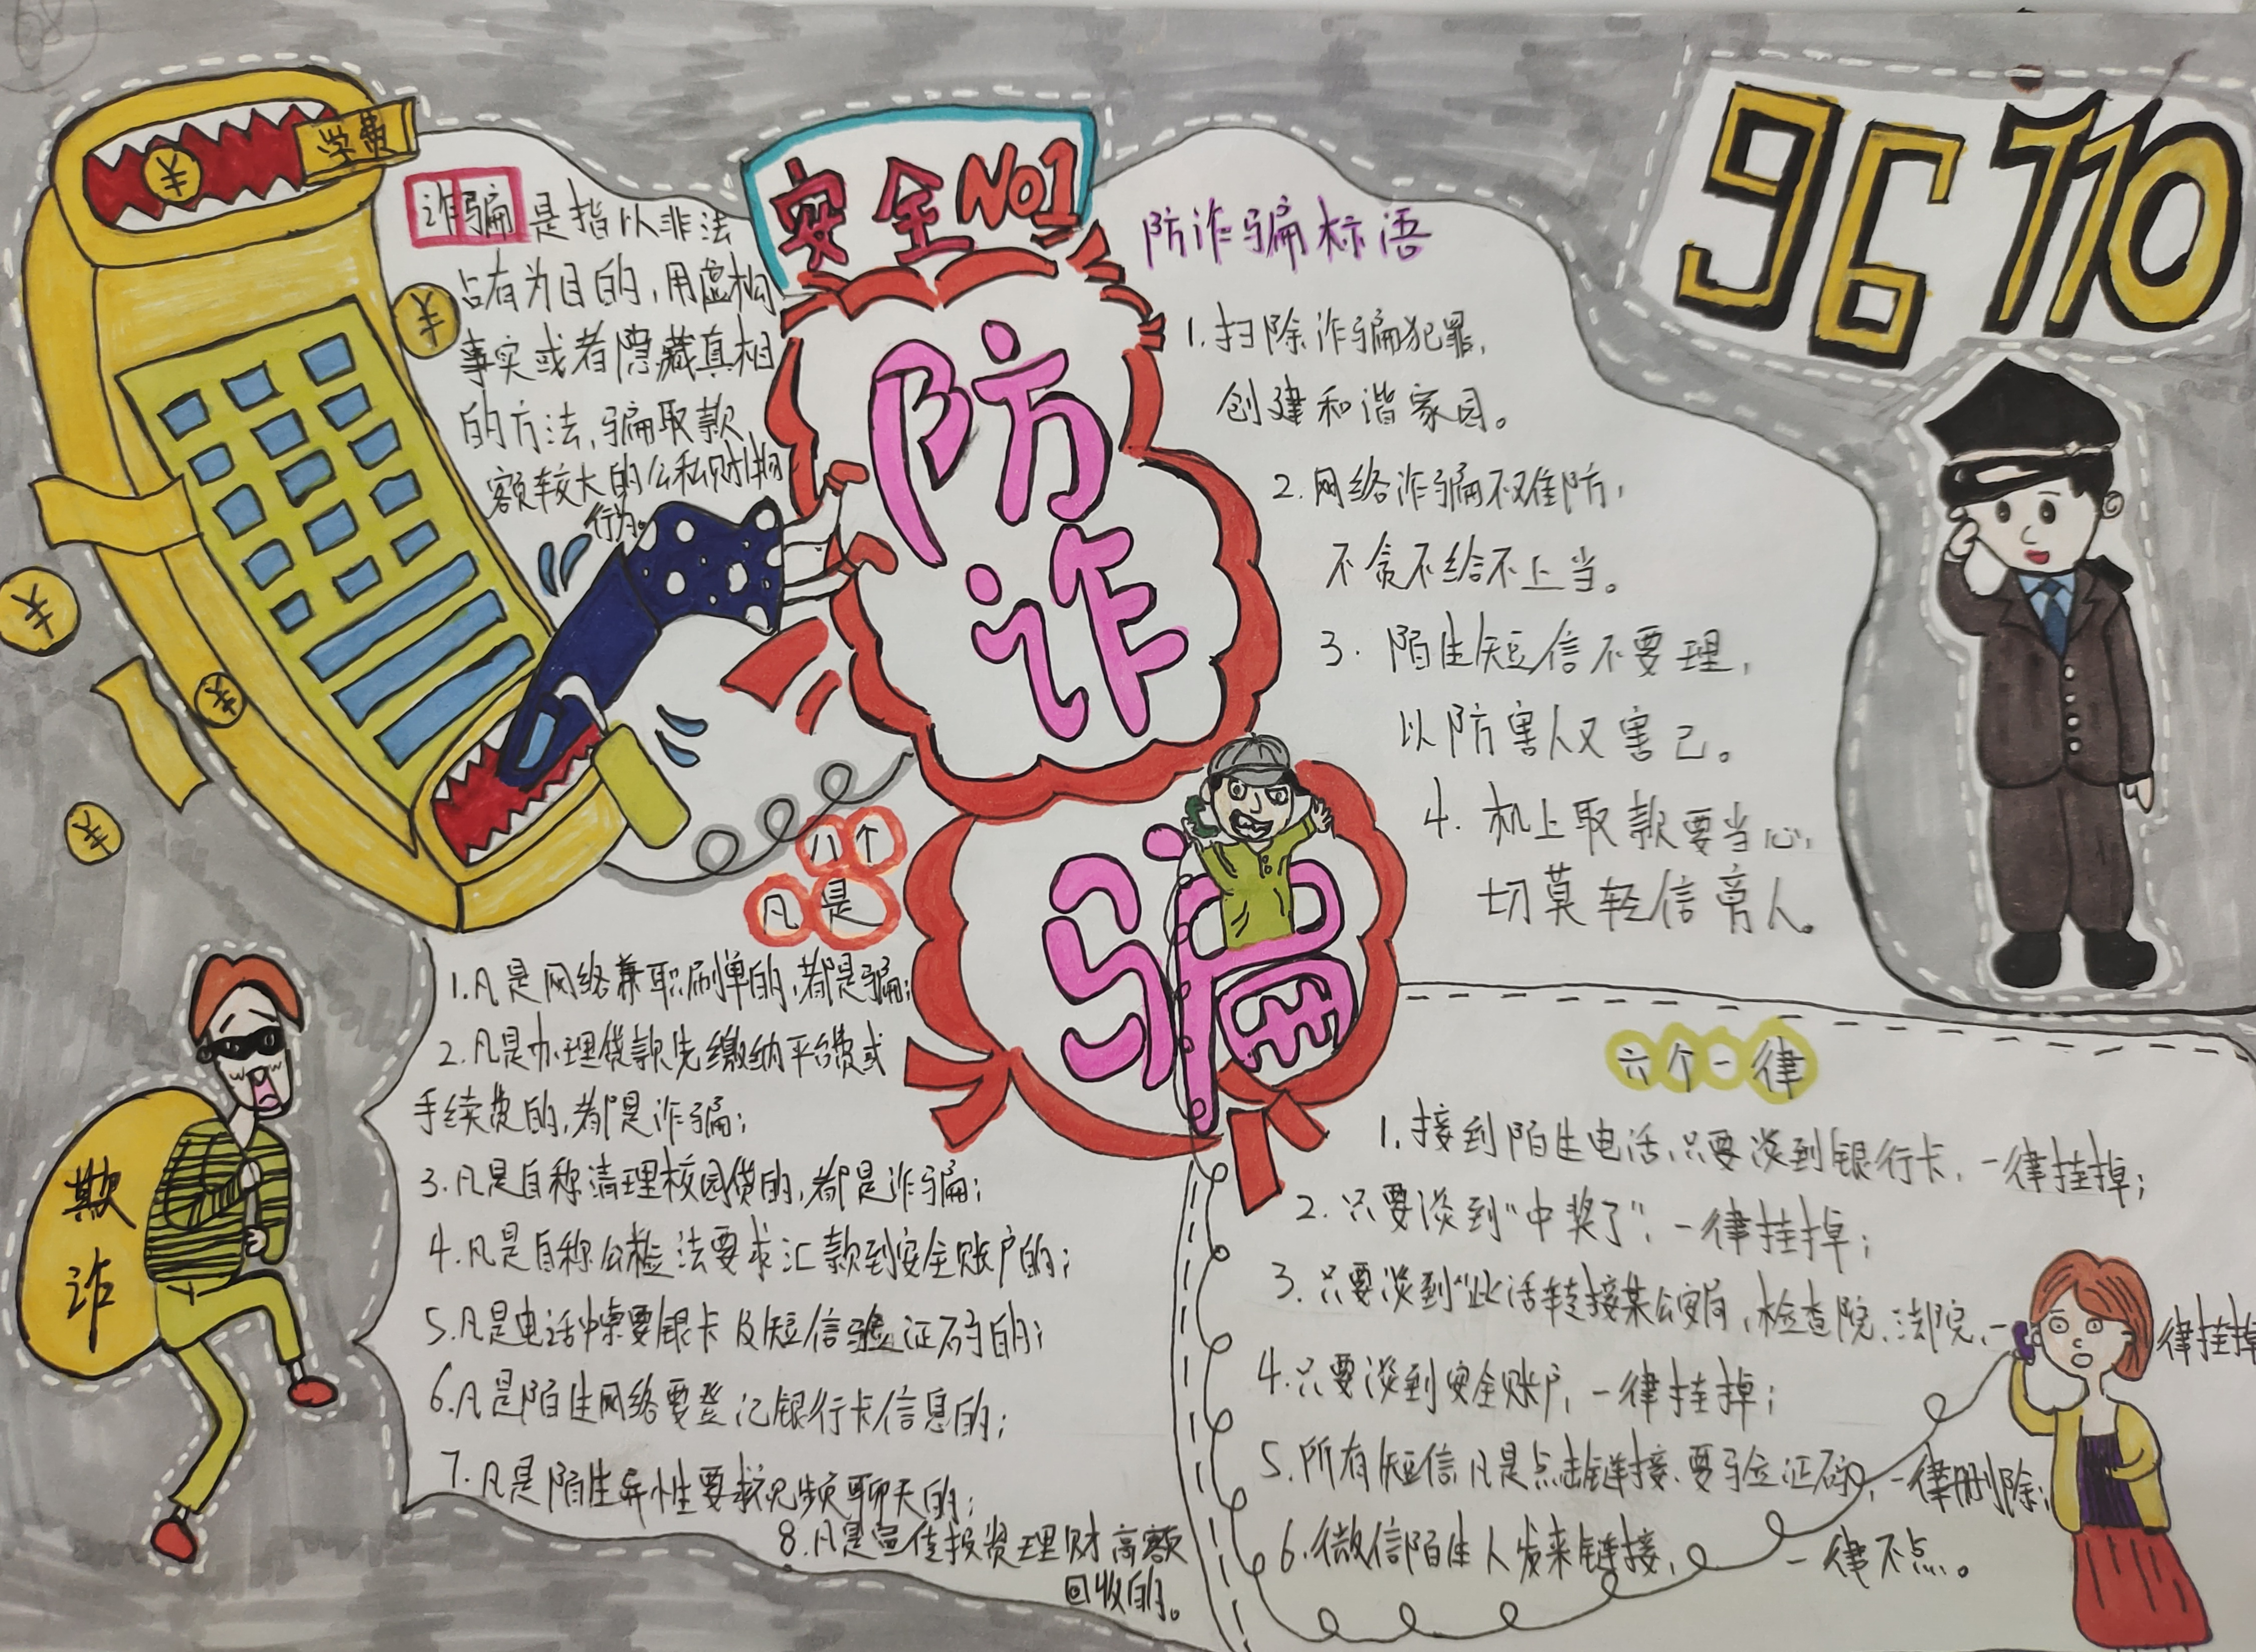 68
学费
安全 No1
防
诈
骗
96110
诈骗是指以非法
占有为目的，用虚构
事实或者隐藏真相
的方法，骗取款
额较大的公私财物
行为。
防诈骗标语
1.扫除诈骗犯罪，
创建和谐家园。
2.网络诈骗不难防，
不贪不给不上当。
3.陌生短信不要理，
以防害人又害己。
4.机上取款要当心，
切莫轻信旁人。
八个
凡是
1.凡是网络兼职刷单的，都是骗；
2.凡是办理贷款先缴纳平台费或
手续费的，都是诈骗；
3.凡是自称清理校园贷的，都是诈骗；
4.凡是自称公检法要求汇款到安全账户的；
5.凡是电话中索要银卡及短信验证码的；
6.凡是陌生网络要登记银行卡信息的；
7.凡是陌生异性要求视频聊天的；
8.凡是宣传投资理财高额
回收的。
欺
诈
六个一律
1.接到陌生电话，只要谈到银行卡，一律挂掉；
2.只要谈到“中奖了”，一律挂掉；
3.只要谈到“此话转接某公安局，检查院、法院，一律挂掉
4.只要谈到安全账户，一律挂掉；
5.所有短信凡是点击链接、要验证码，一律删除；
6.微信陌生人发来链接，一律不点。
¥
¥
¥
¥
¥